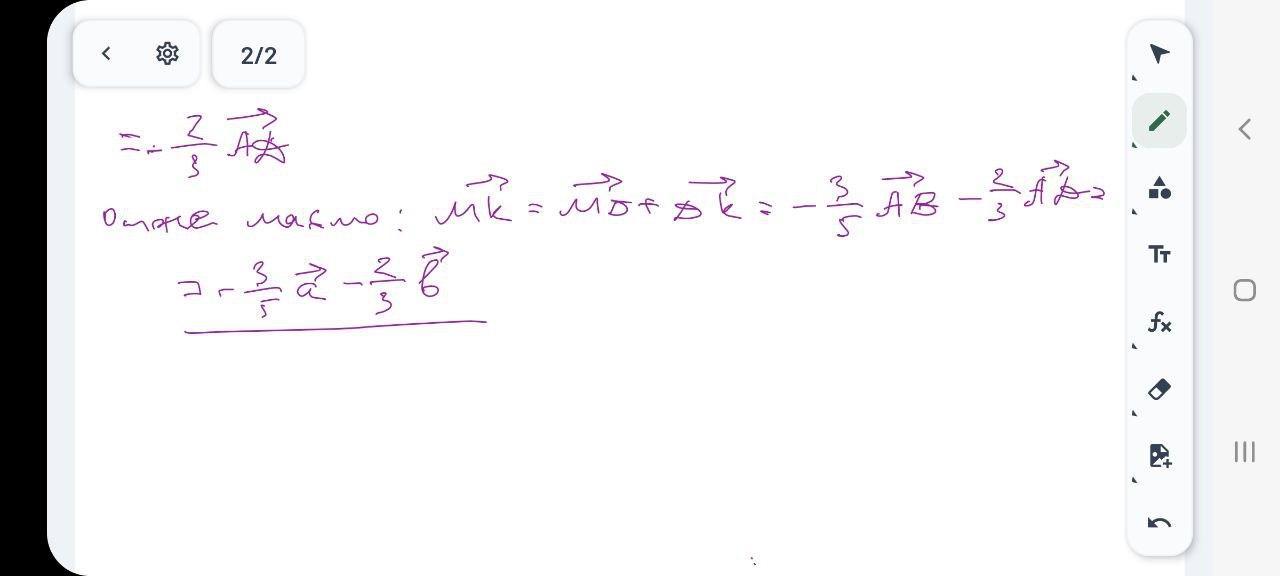 2/2
= - 2/3 AD
Отже маємо: MK = MD + DK = - 3/5 AB - 2/3 AD =
= - 3/5 a - 2/3 b
Tт
fx